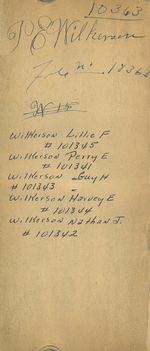 10363
P E Wilkerson
File No 10363
W-15
Wilkerson Lillie F
# 101345
Wilkerson Perry E
# 101341
Wilkerson Guy H
# 101343
Wilkerson Harvey E
# 101344
Wilkerson Nathan J.
# 101342